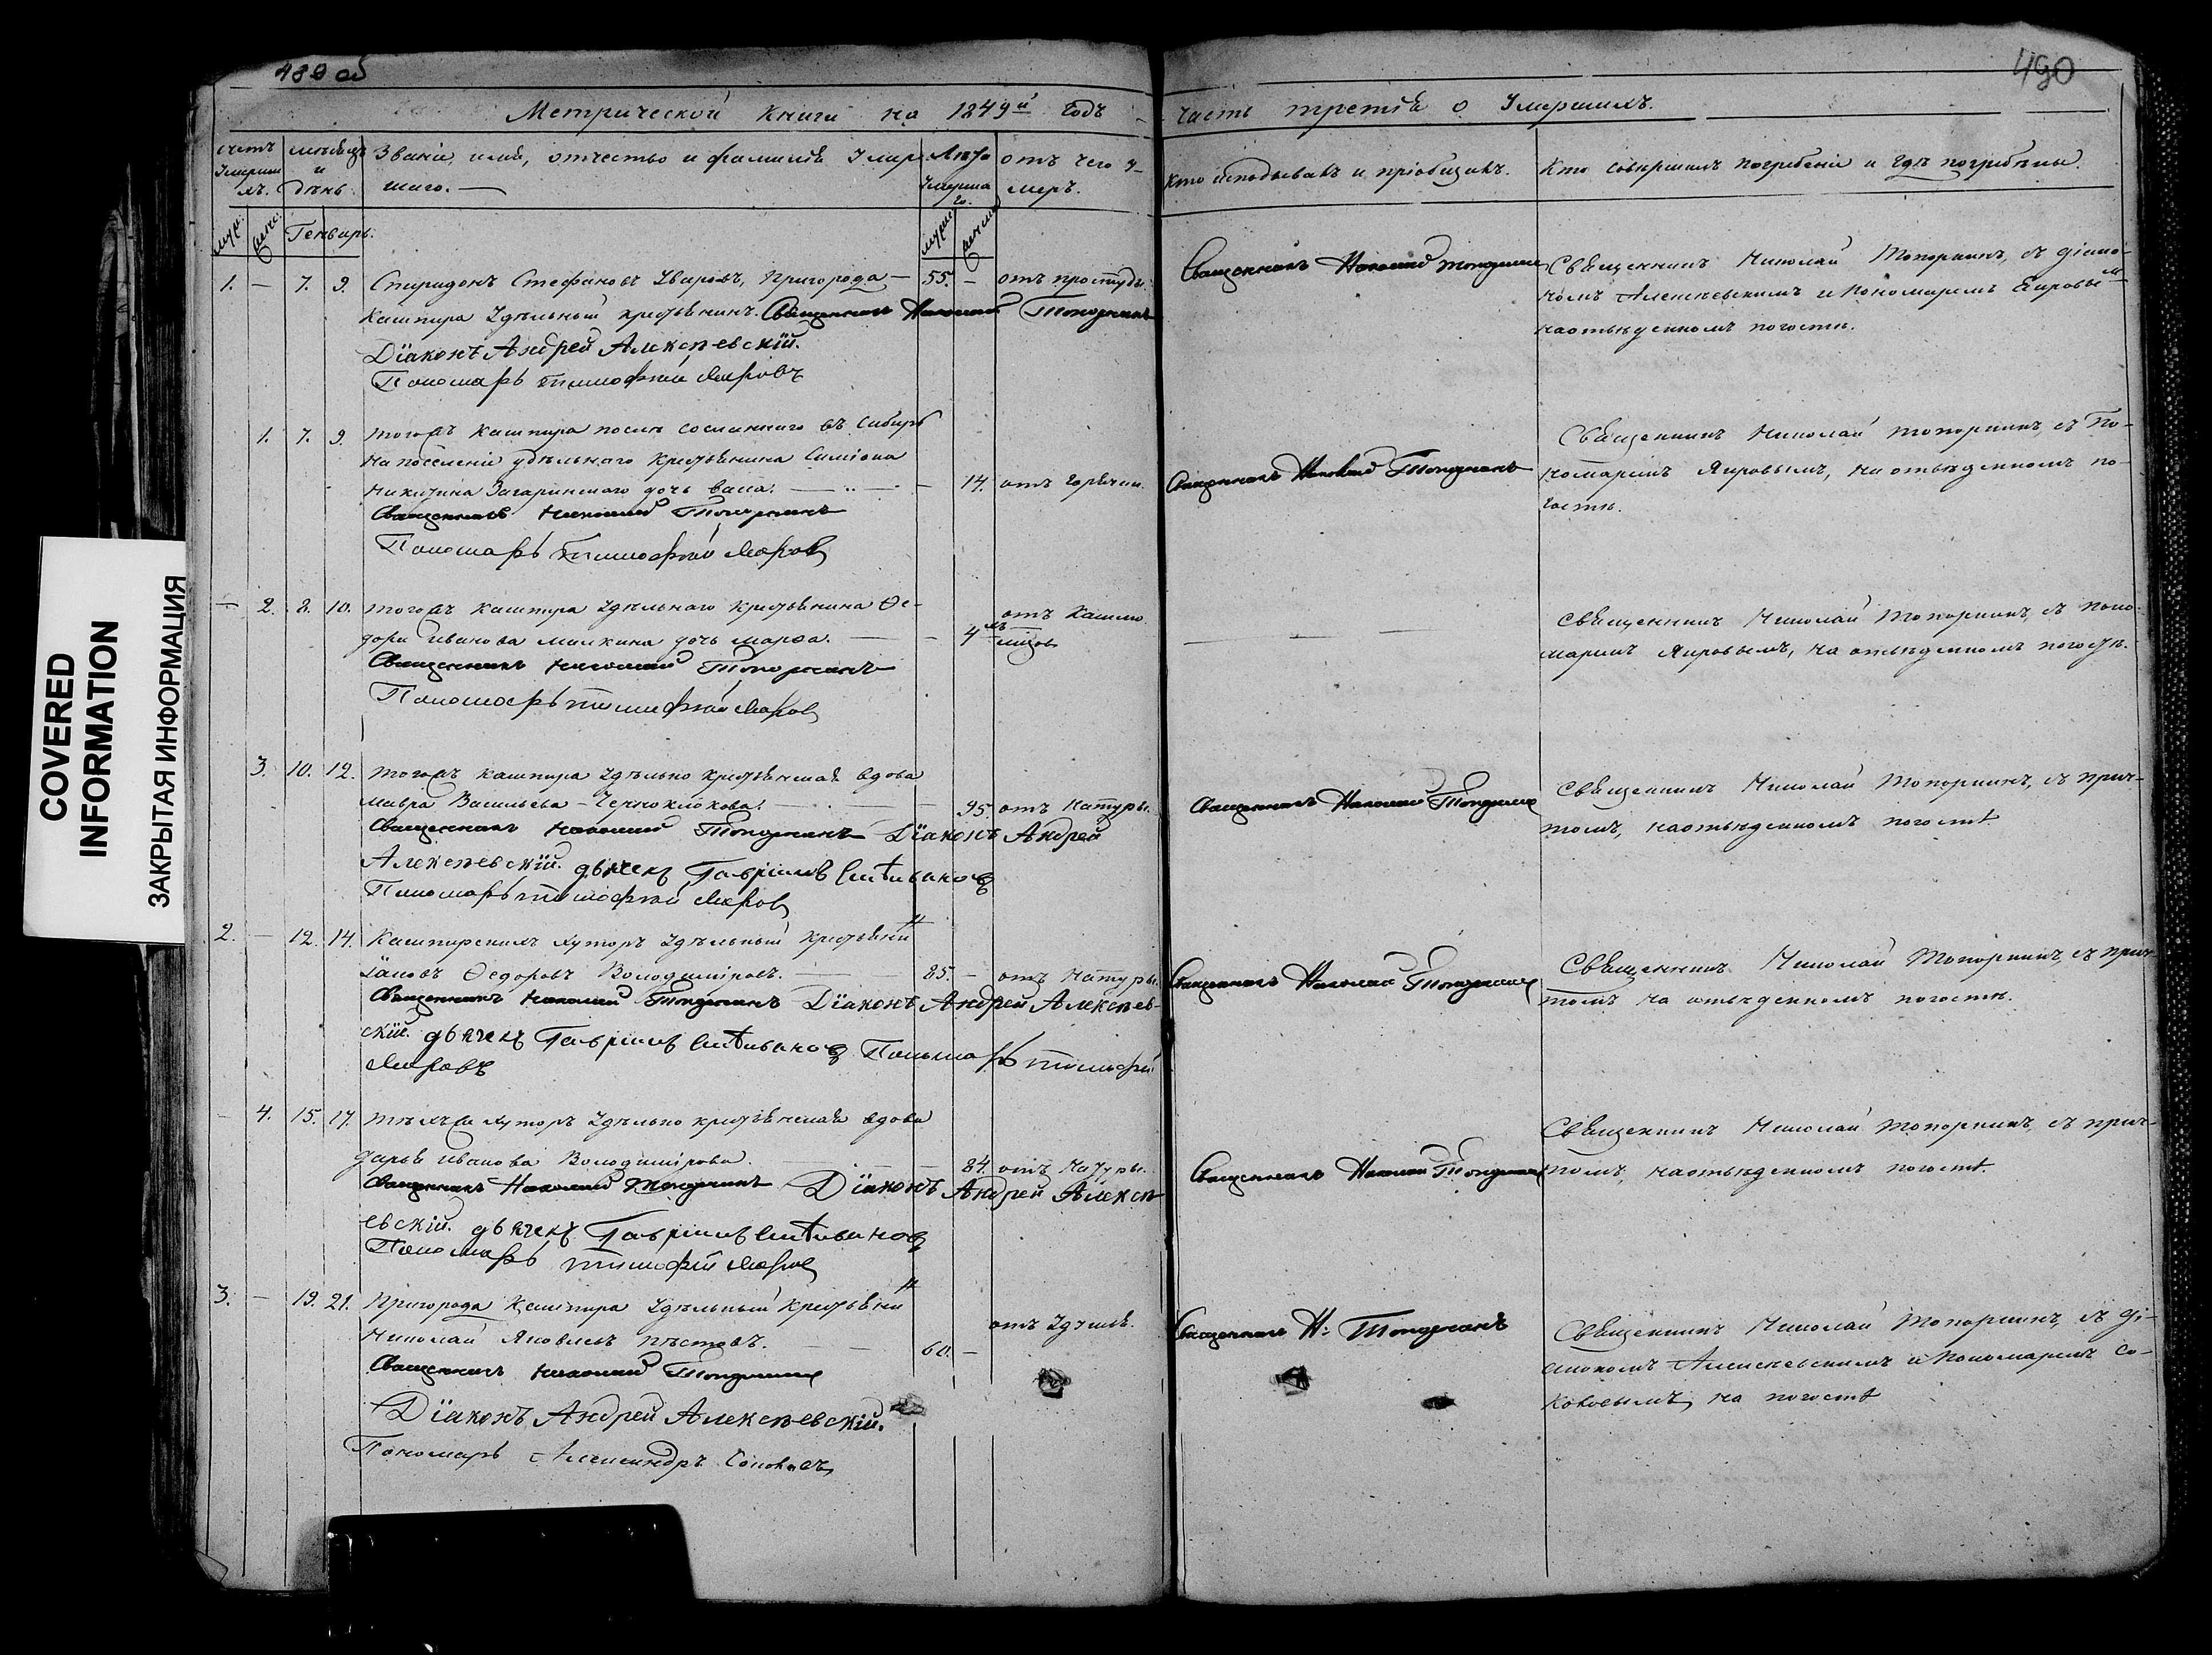 489 об
490
Метрической книги на 1849й годъ
часть третія о Умершихъ.
счетъ Умерших.
мѣсяцъ и день.
Званіе, имя, отчество и фамилія Умершаго.
Лѣта Умершаго.
отъ чего умеръ.
Кто исповѣдывалъ и пріобщалъ.
Кто совершалъ погребеніе и гдѣ погребены.
муж. женс.
Генварь.
муж. женск.
1. — 7. 9. Спиридонъ Стефановъ Уваровъ, Пригорода — 55. — отъ простуды.
Кашпира Удѣльный крестьянинъ. Священникъ Николай Топорнинъ
Дїаконъ Андрей Алексѣевскїй.
Пономарь Тимофей Яировъ
Священникъ Николай Топорнинъ
Священникъ Николай Топорнинъ, съ діако-
номъ Алексѣевскимъ и пономаремъ Яировым
на отведенномъ погостѣ.
1. 7. 9. Тогожъ Кашпира после сосланнаго въ Сибирь
на поселеніе удѣльнаго Крестьянина Симіона
Никитина Загаринскаго дочь васа. — 14. отъ горячки.
Священникъ Николай Топорнинъ
Пономарь Тимофей Яиров
Священникъ Николай Топорнинъ
Священникъ Николай Топорнинъ, съ По-
номаремъ Яировымъ, на отведенномъ по-
гостѣ.
— 2. 8. 10. Тогожъ Кашпира Удѣльнаго Крестьянина Ѳе-
дора Иванова Малкина дочь Марѳа. — 4 мѣ отъ Кашлю.
Священникъ Николай Топорнинъ
Пономарь Тимофей Яиров
Священникъ Николай Топорнинъ, съ поно-
маремъ Яировымъ, на отведенномъ погостѣ.
3. 10. 12. Тогожъ Кашпира Удѣльно крестьянская вдова
Мавра Васильева Чернокнокова. — 95. отъ Натуры.
Священникъ Николай Топорнинъ Дїаконъ Андрей
Алексѣевскїй. дьячек Гавріилъ
Пономарь Тимофей Яиров
Священникъ Николай Топорнинъ
Священникъ Николай Топорнинъ, съ прич-
томъ, на отведенномъ погостѣ.
2. — 12. 14. Кашпирскихъ хуторъ Удѣльный Крестьянин
Іаковъ Ѳедоровъ Володимировъ. — 85. — отъ Натуры.
Священникъ Николай Топорнинъ Дїаконъ Андрей Алексѣев-
скїй. дьячек Гавріилъ Пономарь Тимофей
Яировъ
Священникъ Николай Топорнинъ
Священникъ Николай Топорнинъ, съ прич-
томъ на отведенномъ погостѣ.
4. 15. 17. Тѣхъже хуторъ Удѣльно крестьянская вдова
Дарья Иванова Володимірова. — 84. отъ Натуры.
Священникъ Николай Топорнинъ Дїаконъ Андрей Алексѣ-
евскїй. дьячек Гавріилъ
Пономарь Тимофей Яиров
Священникъ Николай Топорнинъ
Священникъ Николай Топорнинъ, съ прич-
томъ, на отведенномъ погостѣ.
3. — 19. 21. Пригорода Кашпира Удѣльный Крестьянин
Николай Яковлевъ Пѣстовъ. — 60. — отъ Удушья.
Священникъ Николай Топорнинъ
Дїаконъ Андрей Алексѣевскїй.
Пономарь Александръ Соколовъ
Священникъ Н: Топорнинъ
Священникъ Николай Топорнинъ, съ ді-
акономъ Алексѣевскимъ и пономаремъ Со-
коловымъ, на погостѣ
COVERED
INFORMATION
ЗАКРЫТАЯ ИНФОРМАЦИЯ